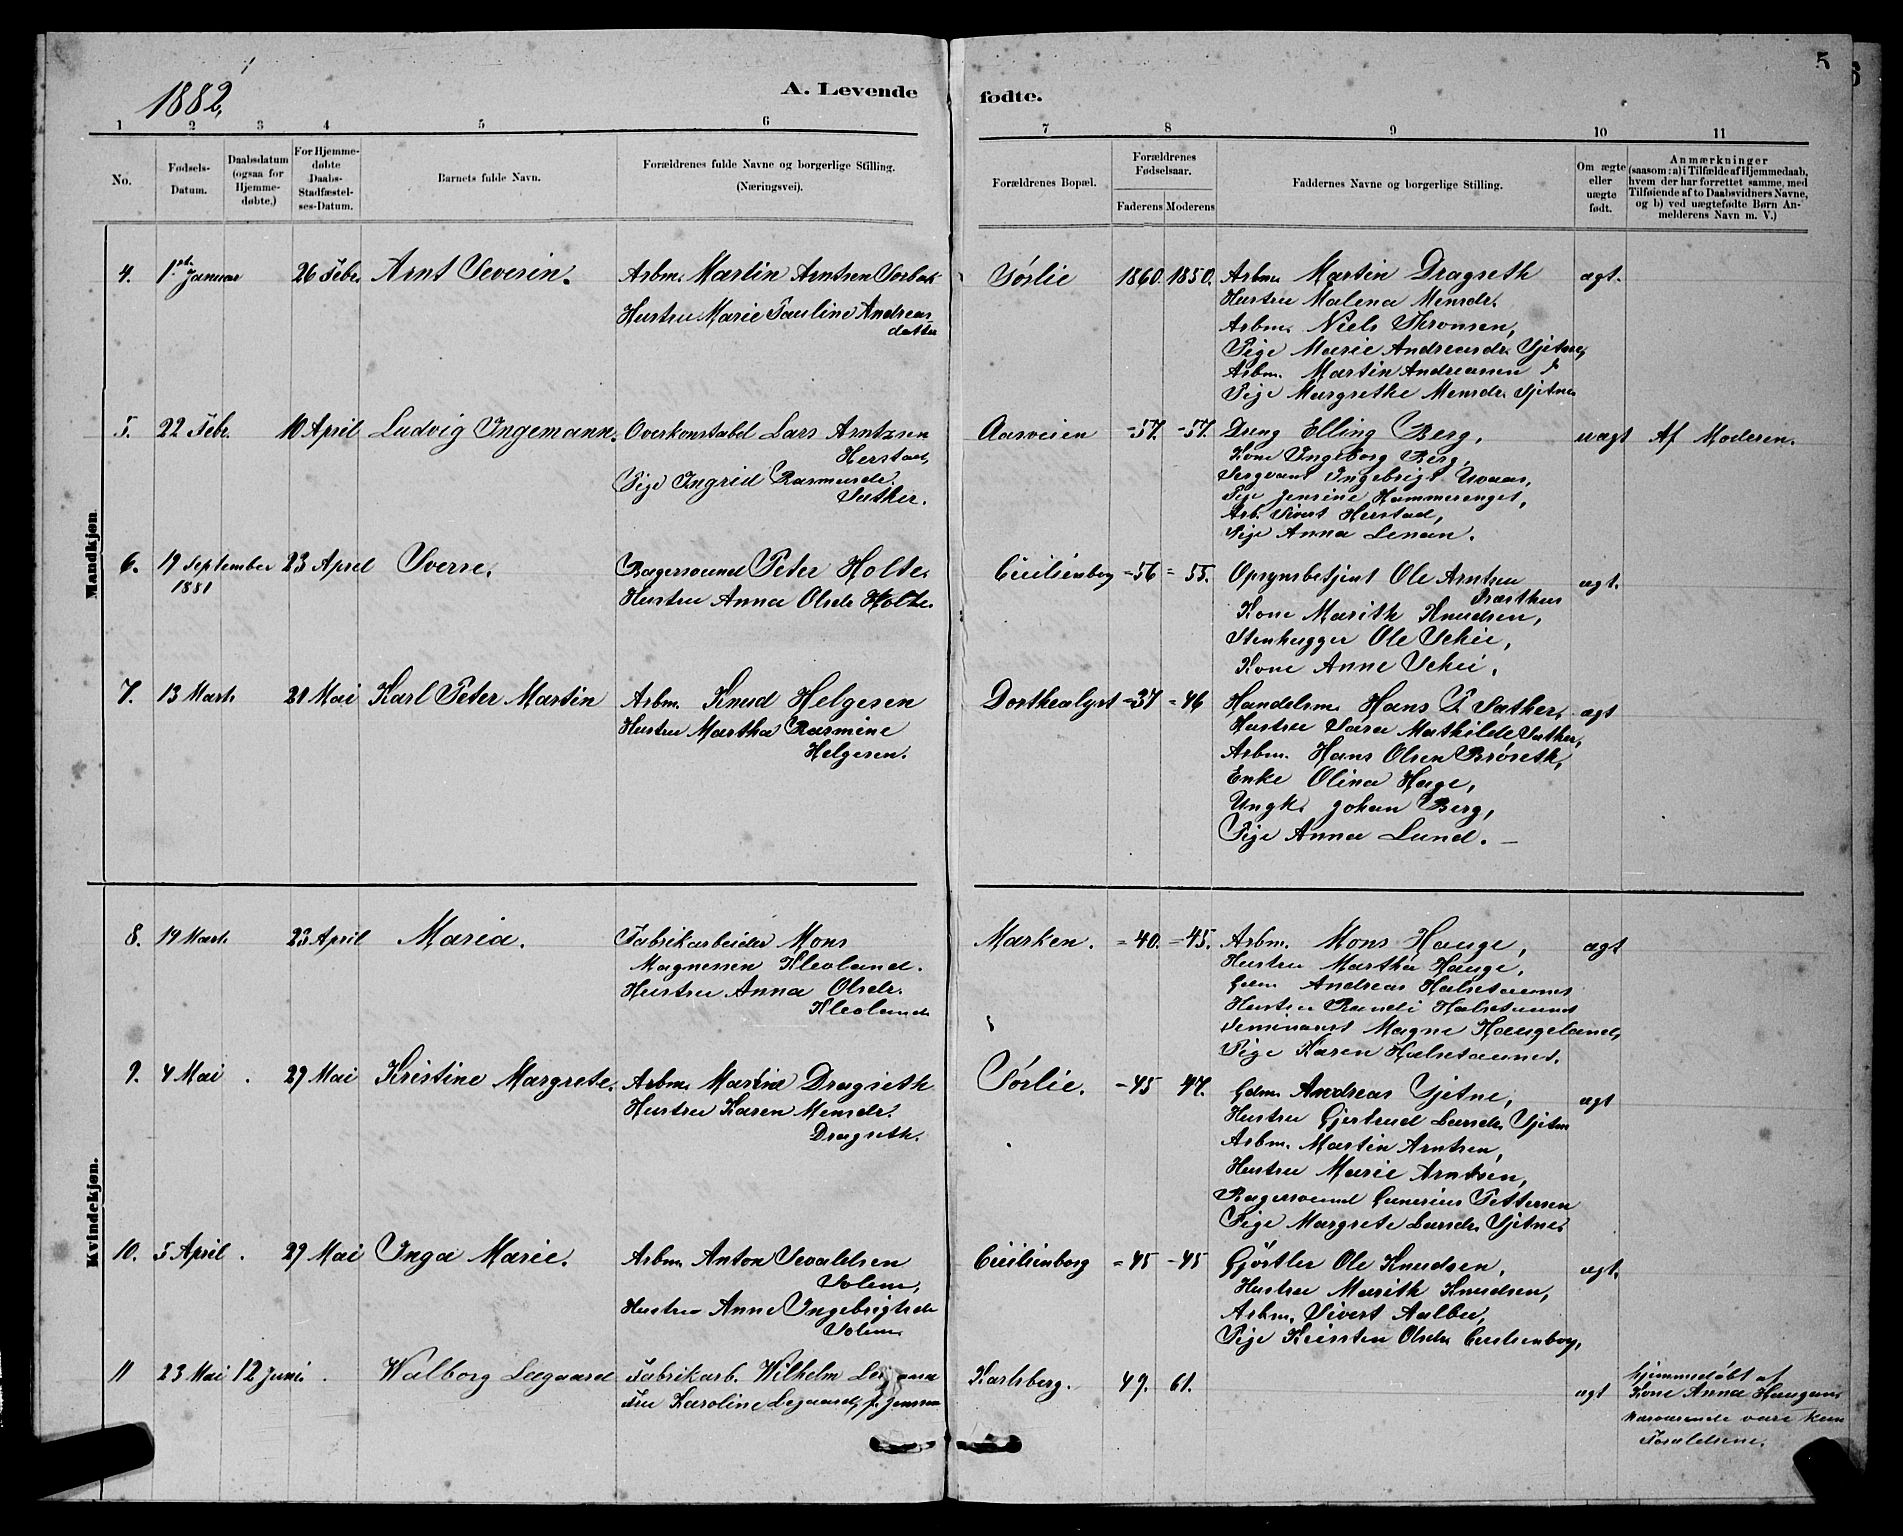 5
6
1882,
A. Levende
fødte.
1 2 3 4 5 6 7 8 9 10 11
No.
Fødsels-
Datum.
Daabsdatum
(ogsaa for
Hjemme-
døbte.)
For Hjemme-
døbte
Daabs-
Stadfæstel-
ses-Datum.
Barnets fulde Navn.
Forældrenes fulde Navne og borgerlige Stilling.
(Næringsvei).
Forældrenes Bopæl.
Forældrenes
Fødselsaar.
Faderens Moderens
Faddernes Navne og borgerlige Stilling.
Om ægte
eller
uægte
født.
Anmærkninger
(saasom: a) i Tilfælde af Hjemmedaab,
hvem der har forrettet samme, med
Tilføiende af to Daabsvidners Navne,
og b) ved uægtefødte Børn An-
melderens Navn m. V.)
Mandkjøn
4. 1ste Januar 26 Febr Arnt Severin.
Arbm. Martin Arntsen
Hustru Marie Pauline Andreas-
datter
Sørlie 1860. 1850.
Arbm Martin Dragseth
Hustru Malena Monsdr.
Arbm. Niels Thronsen,
Pige Marie Andreasdr. Sjetne,
Arbm. Martin Andreasen
Pige Margrethe Monsdr Sjetne
ægt.
5. 22 Febr. 10 April Ludvig Ingemann.
Overkonstabel Lars Arntzen
Herstad,
Pige Ingrid Rasmusdr.
Sæther.
Aasveien -57. -57.
Dreng Elling Berg,
Kone Ingeborg Berg,
Sergeant Ingebrigt
Pige Jensine Hammerenget,
Arb. Sivert Herstad,
Pige Anna Lenan.
uægt Af Moderen.
6. 19 September 23 April Sverre.
1881
Bagersvend Peter Holte.
Hustru Anna Olsdr Holte.
Cecilienborg =56 = 55.
Opsynsbetjent Ole Arntsen
Præsthus
Kone Marith Knudsen,
Stenhugger Ole Schei,
Kone Anne Schei.
ægt.
7. 13 Marts 21 Mai Karl Peter Martin
Arbm. Knud Helgesen
Hustru Martha Rasmine
Helgesen.
Dorthealyst =37 =46
Handelsm. Hans P. Sæther,
Hustru Sara Mathilde Sæther,
Arbm. Hans Olsen Brøseth,
Enke Olina Hage,
Ungk. Johan Berg,
Pige Anna Lund. —
ægt
Kvindekjøn.
8. 19 Marts 23 April Maria.
Fabrikarbeider Mons
Magnessen Kleoland.
Hustru Anna Olsdr.
Kleoland
Marken. =40. =45.
Arbm. Mons Hauge,
Hustru Martha Hauge,
Gdm Andreas Halsetaunet
Hustru Randi Halsetaunet
Seminarist Magne Haugeland,
Pige Karen Halsetaunet.
ægt
9. 4 Mai . 29 Mai Kristine Margrete.
Arbm. Martin Dragseth
Hustru Karen Monsdr.
Dragseth.
Sørlie. =45 47.
Gdm. Andreas Sjetne,
Hustru Gjertrud Larsdr. Sjetne
Arbm. Martin Arntsen,
Hustru Marie Arntsen,
Bagersvend Gunerius Pettersen
Pige Margrete Larsdr Sjetne
ægt
10. 5 April . 29 Mai Inga Marie.
Arbm. Anton Sevaldsen
Solem,
Hustru Anne Ingebrigtsdr
Solem
Cecilienborg =45 -45
Gjørtler Ole Knudsen,
Hustru Marith Knudsen,
Arbm. Sivert Aalbu,
Pige Kirsten Olsdr Cecilienborg,
ægt.
11 23 Mai 12 Juni . Walborg Legaard
Fabrikarb. Wilhelm
Fru Karoline Legaard, f. Jenssen
Karlsberg. 49. 61.
ægt
Hjemmedøbt af
Kone Anna Haugan
nærværende vare kun
Forældrene.